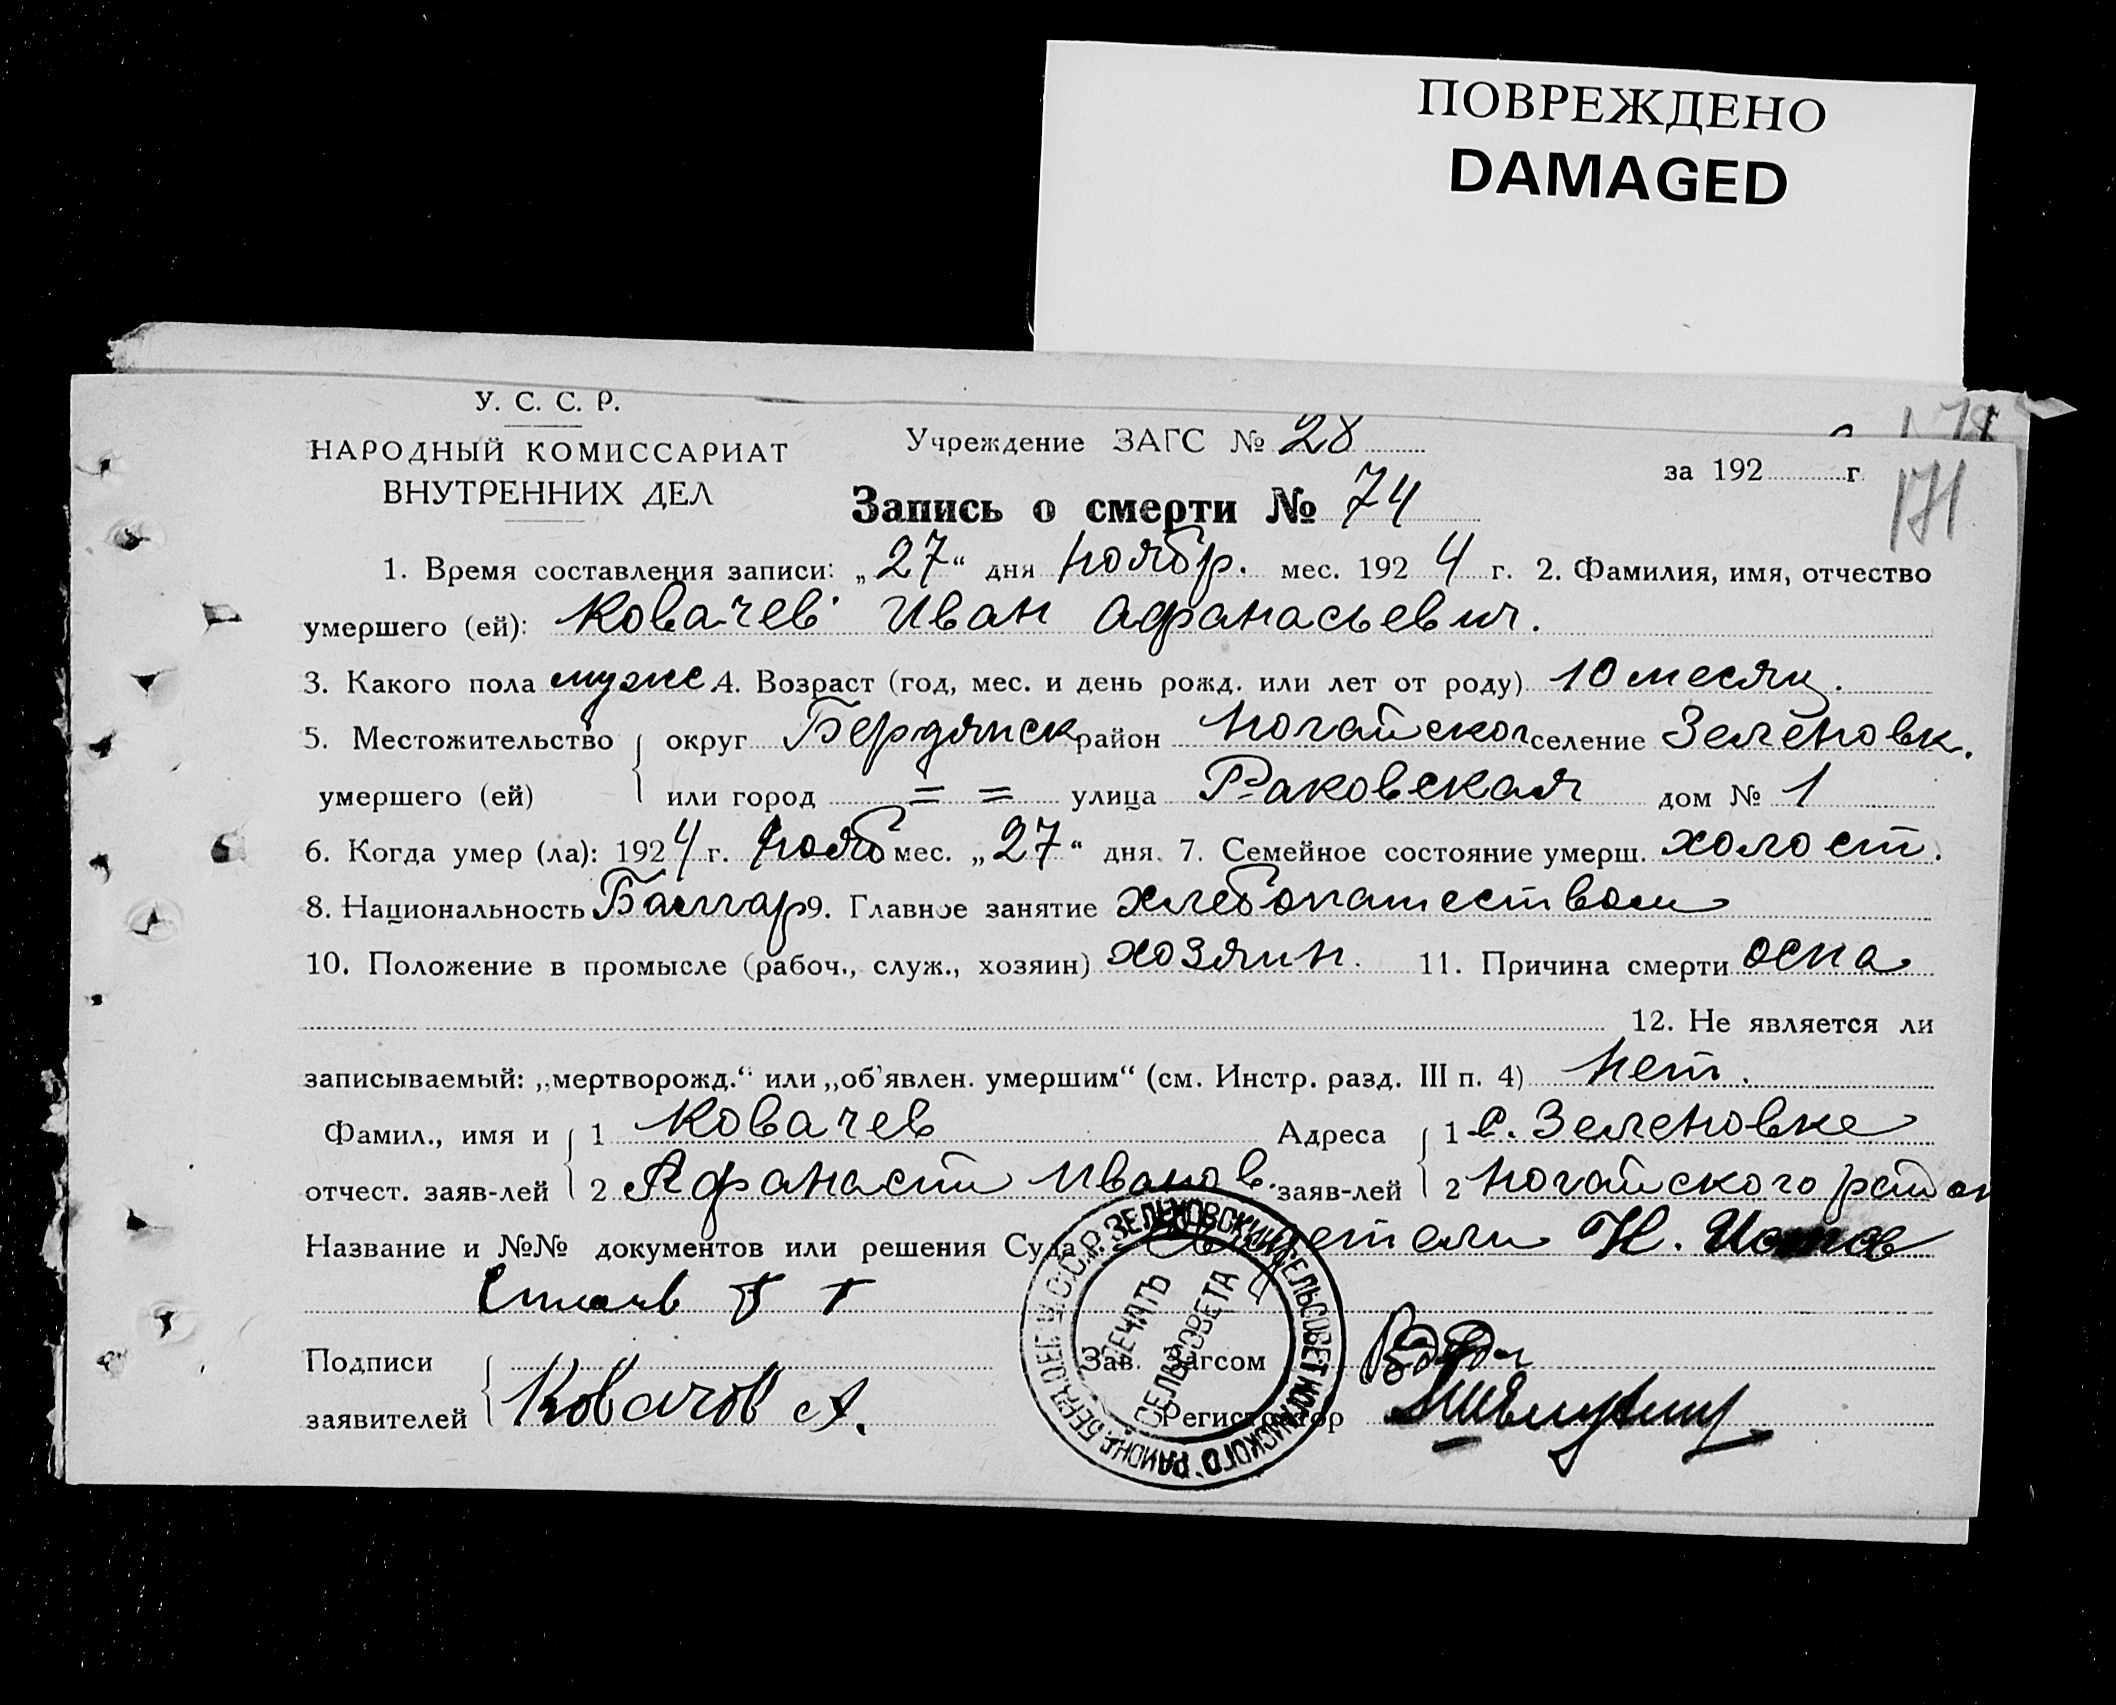 ПОВРЕЖДЕНО
DAMAGED
У. С. С. Р.
НАРОДНЫЙ КОМИССАРИАТ
ВНУТРЕННИХ ДЕЛ
Учреждение ЗАГС № 28
за 192 г.
171
Запись о смерти № 74
1. Время составления записи: „27“ дня Ноябр. мес. 1924 г. 2. Фамилия, имя, отчество
умершего (ей): Ковачев Иван Афанасьевич.
3. Какого пола мужс 4. Возраст (год, мес. и день рожд. или лет от роду) 10 месяц.
5. Местожительство округ Бердянск район Ногайског селение Зеленовк.
умершего (ей) или город = = улица Раковская дом № 1
6. Когда умер (ла): 1924 г. Нояб мес. „27“ дня. 7. Семейное состояние умерш. холост.
8. Национальность Балгар 9. Главное занятие хлебопашеством
10. Положение в промысле (рабоч., служ., хозяин) хозяин. 11. Причина смерти оспа
12. Не является ли
записываемый: „мертворожд.“ или „об'явлен. умершим“ (см. Инстр. разд. III п. 4) Нет.
Фамил., имя и 1 Ковачев Адреса 1 с. Зеленовке
отчест. заяв-лей 2 Афанасий Иванов. заяв-лей 2 Ногайского район
Название и №№ документов или решения Суда Свидетели Н.
Подписи Зав. Загсом
заявителей Ковачов А. Регистратор
У.С.С.Р. ЗЕЛЕНОВСКИЙ СЕЛЬСОВЕТ НОГАЙСКОГО РАЙОНА БЕРД. ОКР.
ПЕЧАТЬ
СЕЛЬСОВЕТА